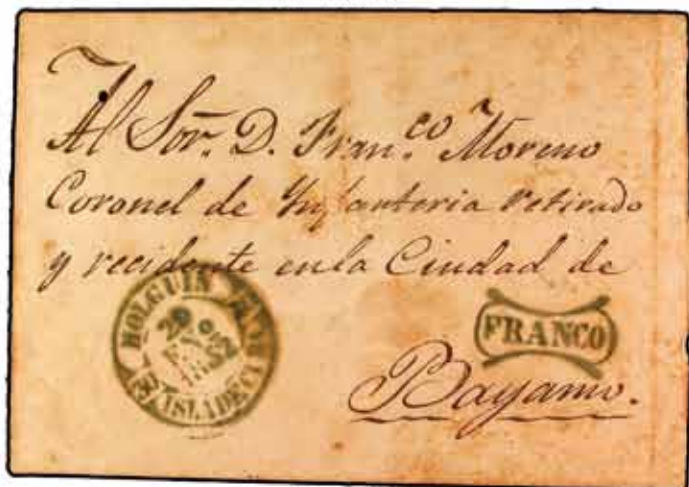 Al Sor. D. Fran.co Moreno
Coronel de Infanteria retirado
y recidente en la Ciudad de
HOLGUIN
20
1852
ISLA DE CUBA
FRANCO
Bayamo.